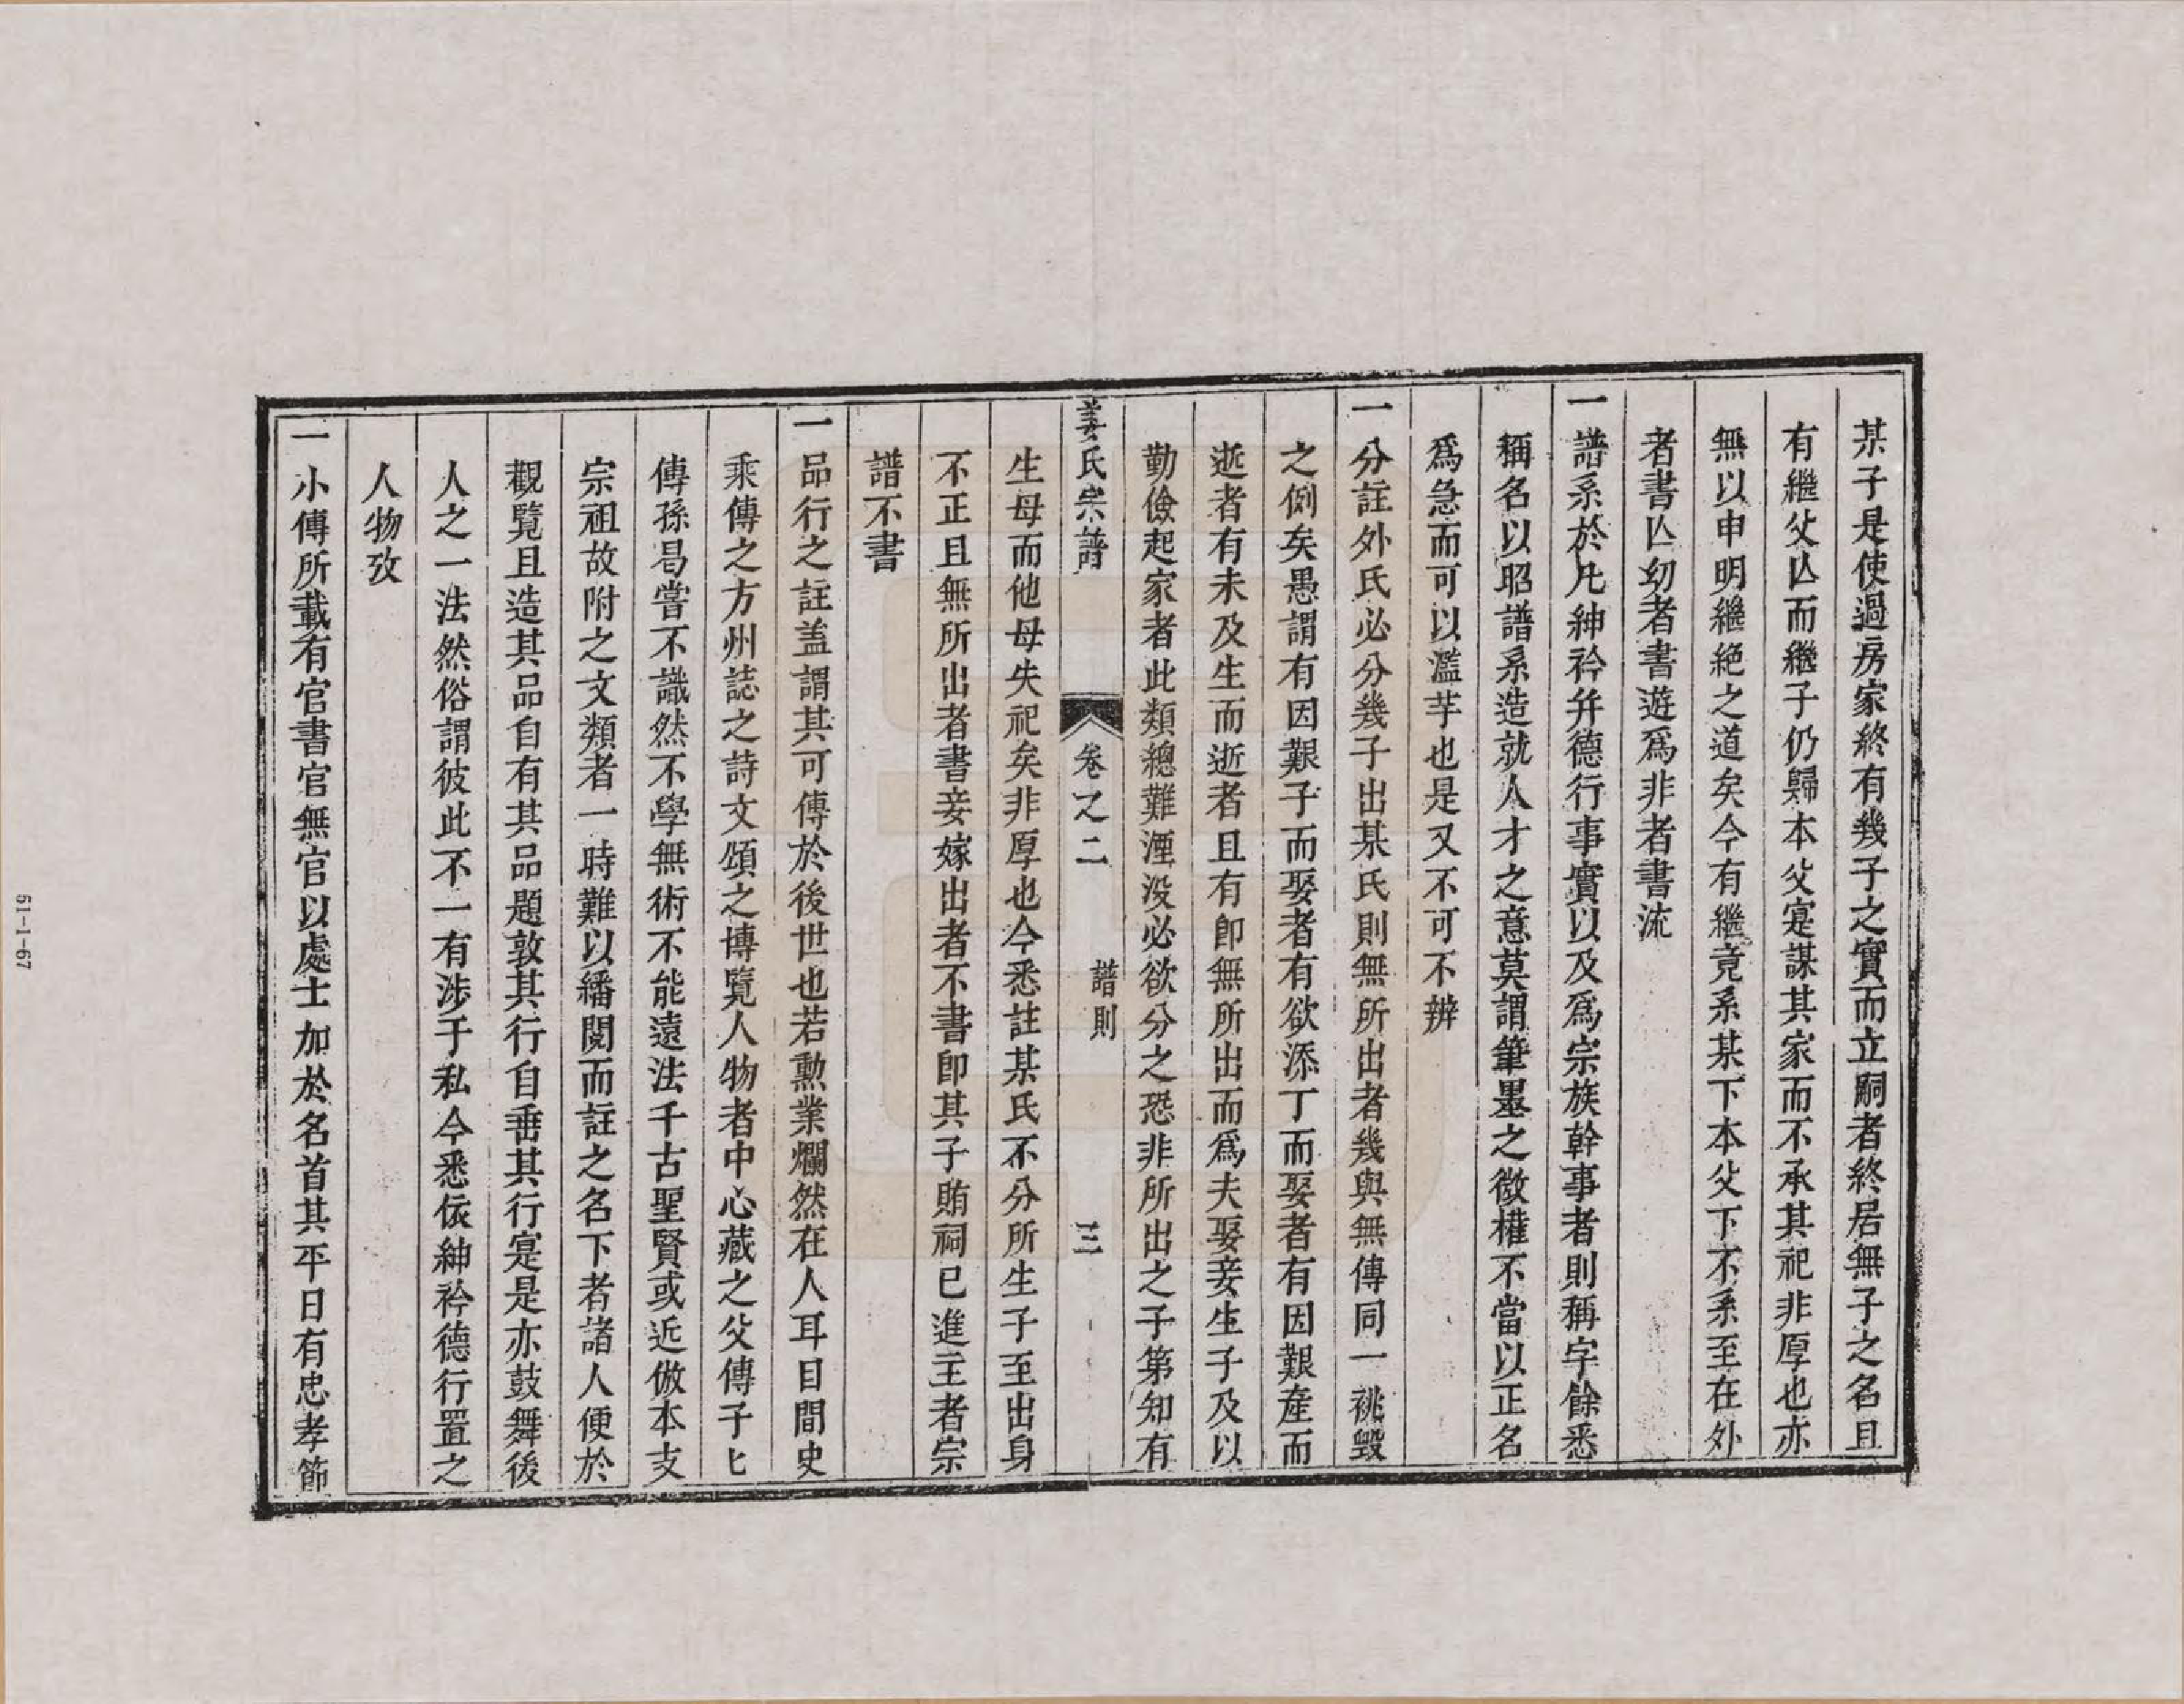 某子是使過房家終有幾子之實而立嗣者終居無子之名且
有繼父亾而繼子仍歸本父寔謀其家而不承其祀非厚也亦
無以申明繼絕之道矣今有繼竟系某下本父下不系至在外
者書亾幼者書遊爲非者書流
一譜系於凡紳衿弁德行事實以及爲宗族幹事者則稱字餘悉
稱名以昭譜系造就人才之意莫謂筆墨之微權不當以正名
爲急而可以濫芋也是又不可不辨
一分註外氏必分幾子出某氏則無所出者幾與無傳同一祧毀
之例矣愚謂有因艱子而娶者有欲添丁而娶者有因艱產而
逝者有未及生而逝者且有卽無所出而爲夫娶妾生子及以
勤儉起家者此類總難湮没必欲分之恐非所出之子第知有
姜氏宗譜 卷之二 譜則 三
生母而他母失祀矣非厚也今悉註某氏不分所生子至出身
不正且無所出者書妾嫁出者不書卽其子賄祠已進主者宗
譜不書
一品行之註盖謂其可傳於後世也若勳業爛然在人耳目間史
乘傳之方州誌之詩文頌之博覽人物者中心藏之父傳子匕
傳孫曷嘗不識然不學無術不能遠法千古聖賢或近倣本支
宗祖故附之文類者一時難以繙閱而註之名下者諸人便於
觀覽且造其品自有其品題敦其行自垂其行寔是亦鼓舞後
人之一法然俗謂彼此不一有涉于私今悉依紳衿德行置之
人物攷
一小傳所載有官書官無官以處士加於名首其平日有忠孝節
61-1-67